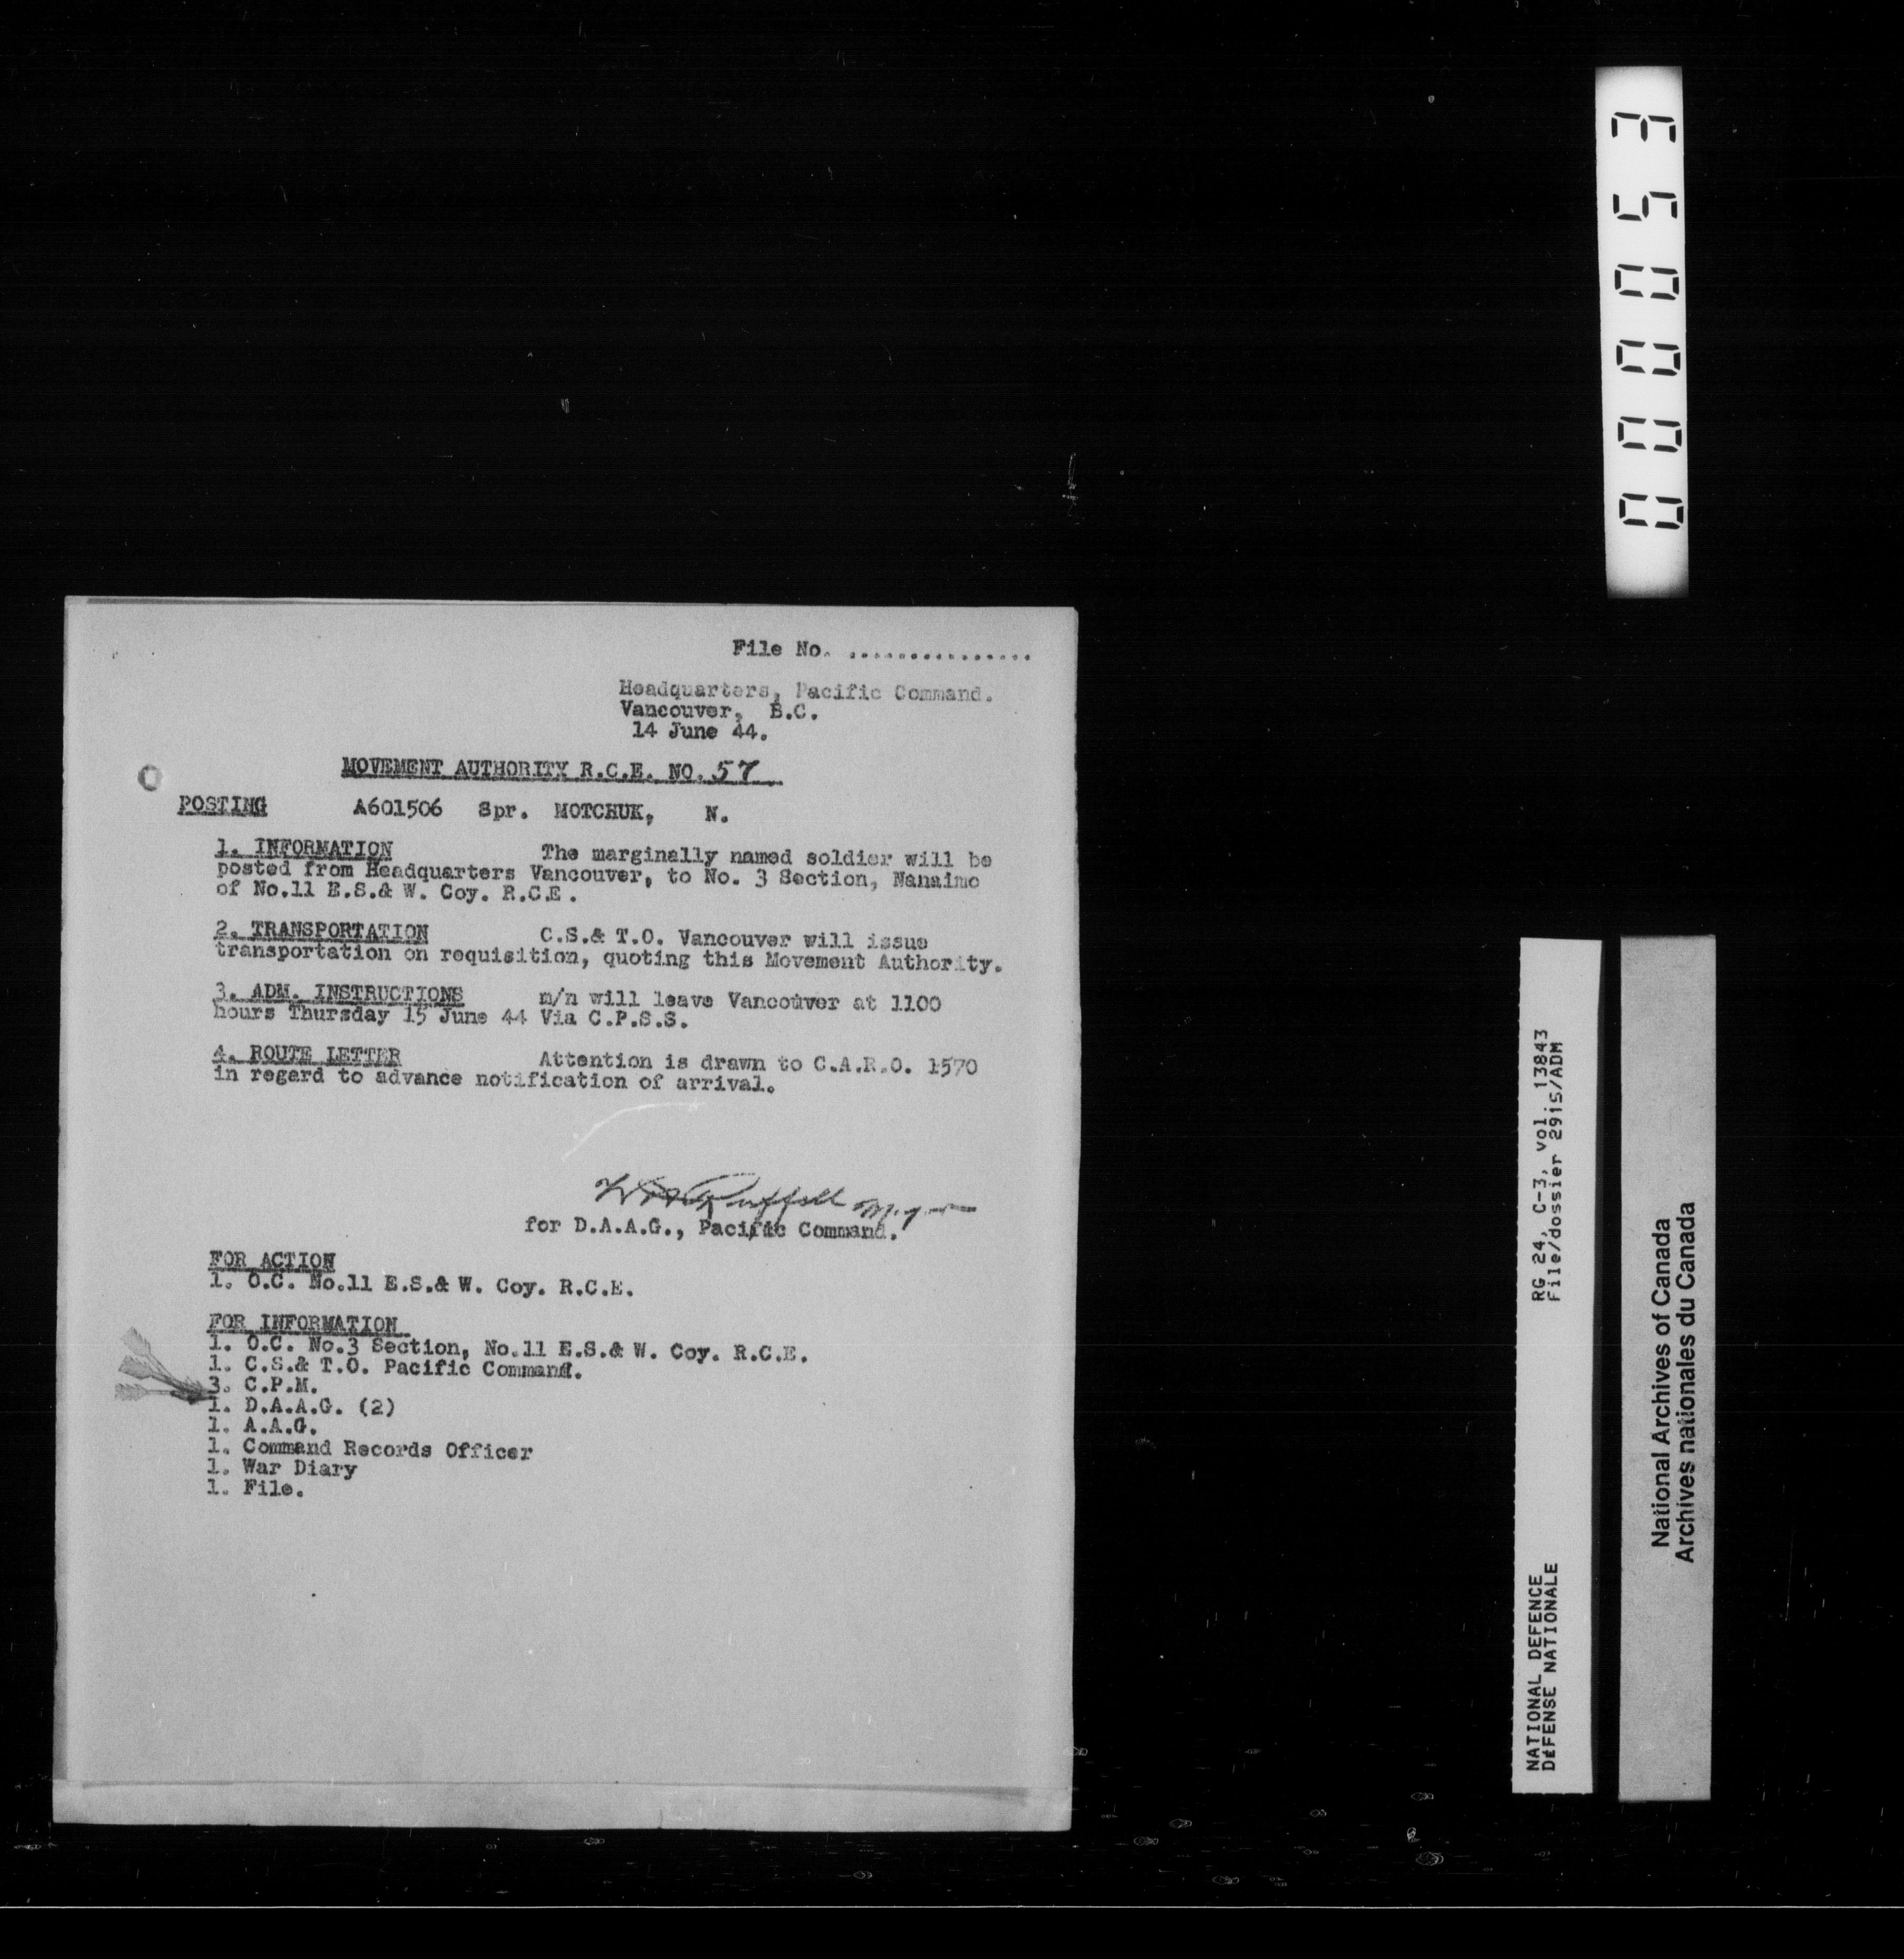 File No. ...............
Headquarters, Pacific Command.
Vancouver, B.C.
14 June 44.
MOVEMENT AUTHORITY R.C.E. NO. 57
POSTING A601506 Spr. MOTCHUK, N.
1. INFORMATION The marginally named soldier will be
posted from Headquarters Vancouver, to No. 3 Section, Nanaimo
of No.11 E.S.& W. Coy. R.C.E.
2. TRANSPORTATION C.S.& T.O. Vancouver will issue
transportation on requisition, quoting this Movement Authority.
3. ADM. INSTRUCTIONS m/n will leave Vancouver at 1100
hours Thursday 15 June 44 Via C.P.S.S.
4. ROUTE LETTER Attention is drawn to C.A.R.O. 1570
in regard to advance notification of arrival.
for D.A.A.G., Pacific Command.
FOR ACTION
1. O.C. No.11 E.S.& W. Coy. R.C.E.
FOR INFORMATION
1. O.C. No.3 Section, No.11 E.S.& W. Coy. R.C.E.
1. C.S.& T.O. Pacific Command.
3. C.P.M.
1. D.A.A.G. (2)
1. A.A.G.
1. Command Records Officer
1. War Diary
1. File.
000053
RG 24, C-3, vol. 13843
File/dossier 29is/ADM
NATIONAL DEFENCE
DÉFENSE NATIONALE
National Archives of Canada
Archives nationales du Canada